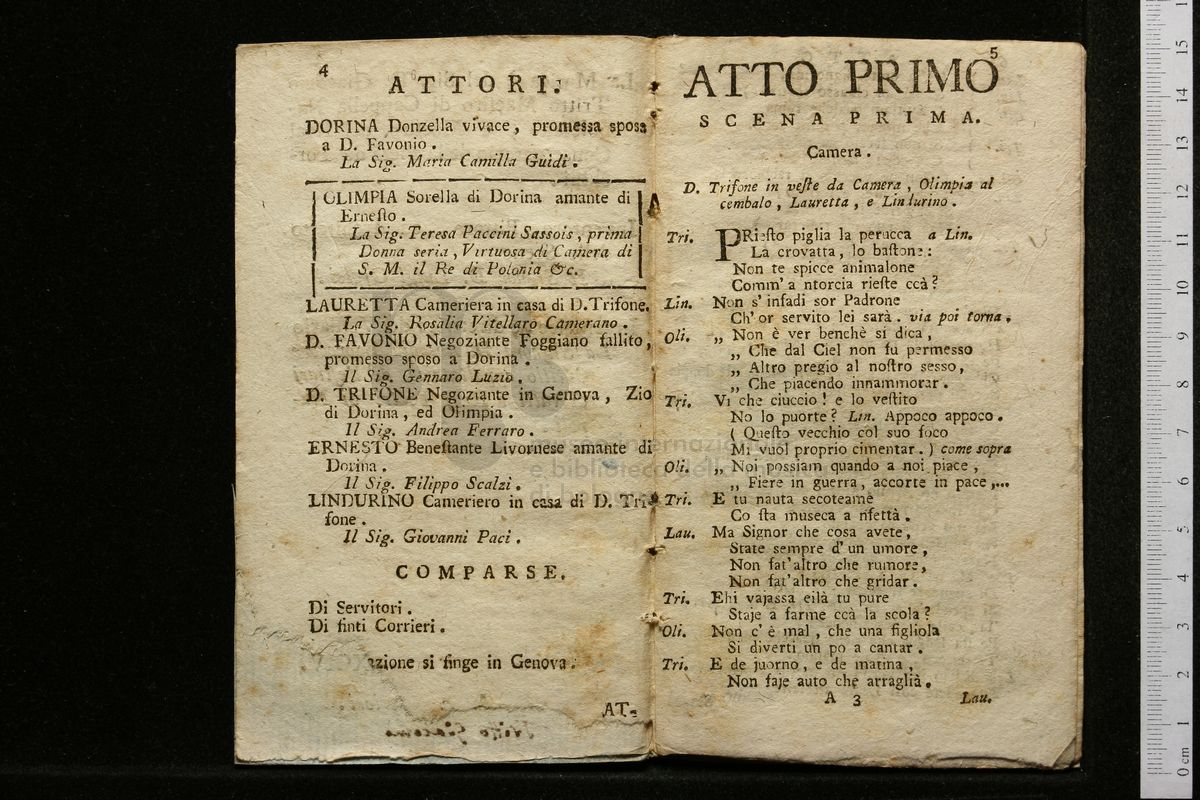 4
ATTORI.
DORINA Donzella vivace, promessa sposa
a D. Favonio.
La Sig. Maria Camilla Guidi.
OLIMPIA Sorella di Dorina amante di
Erneſto.
La Sig. Teresa Paccini Sassois, prima
Donna seria, Virtuosa di Camera di
S. M. il Re di Polonia &c.
LAURETTA Cameriera in casa di D. Trifone.
La Sig. Rosalia Vitellaro Camerano.
D. FAVONIO Negoziante Foggiano fallito,
promesso sposo a Dorina.
Il Sig. Gennaro Luzio.
D. TRIFONE Negoziante in Genova, Zio
di Dorina, ed Olimpia.
Il Sig. Andrea Ferraro.
ERNESTO Beneſtante Livornese amante di
Dorina.
Il Sig. Filippo Scalzi.
LINDURINO Cameriero in casa di D. Tri-
fone.
Il Sig. Giovanni Paci.
COMPARSE.
Di Servitori.
Di finti Corrieri.
azione si finge in Genova.
AT-
5
ATTO PRIMO
SCENA PRIMA.
Camera.
D. Trifone in veſte da Camera, Olimpia al
cembalo, Lauretta, e Lindurino.
Tri. PRieſto piglia la perucca a Lin.
La crovatta, lo baſtone:
Non te spicce animalone
Comm' a ntorcia rieſte ccà?
Lin. Non s' infadi sor Padrone
Ch' or servito lei sarà. via poi torna.
Oli. „ Non è ver benchè si dica,
„ Che dal Ciel non fu permesso
„ Altro pregio al noſtro sesso,
„ Che piacendo innammorar.
Tri. Vi che ciuccio! e lo veſtito
No lo puorte? Lin. Appoco appoco.
( Queſto vecchio col suo foco
Mi vuol proprio cimentar. ) come sopra
Oli. „ Noi possiam quando a noi piace,
„ Fiere in guerra, accorte in pace,...
Tri. E tu nauta secoteamè
Co ſta museca a nfettà.
Lau. Ma Signor che cosa avete,
State sempre d' un umore,
Non fat' altro che rumore,
Non fat' altro che gridar.
Tri. Ehi vajassa eilà tu pure
Staje a farme ccà la scola?
Oli. Non c' è mal, che una figliola
Si diverti un po a cantar.
Tri. E de juorno, e de matina,
Non faje auto che arraglià.
A 3 Lau.